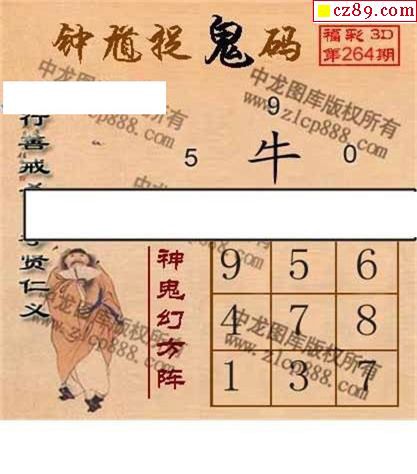 cz89.com
钟馗捉鬼码
福彩3D
第264期
中龙图库版权所有
www.zlcp888.com
9
5 牛 0
行善戒
贤仁义
神鬼幻方阵
9 5 6
4 7 8
1 3 7
中龙图库版权所有
www.zlcp888.com